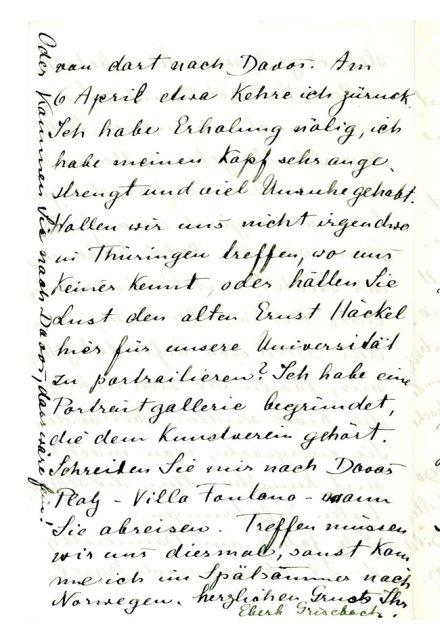 von dort nach Davos. Am
6 April etwa kehre ich zurück.
Ich habe Erholung nötig, ich
habe meinen Kopf sehr ange-
strengt und viel Unruhe gehabt.
Wollen wir uns nicht irgendwo
in Thüringen treffen, wo uns
keiner kennt, oder hätten Sie
Lust den alten Ernst Häckel
hier für unsere Universität
zu portraitieren? Ich habe eine
Portraitgallerie begründet,
die dem Kunstverein gehört.
Schreiben Sie mir nach Davos
Platz - Villa Fontana - wann
Sie abreisen. Treffen müssen
wir uns diesmal, sonst kom
me ich im Spätsommer nach
Norwegen. herzlichen Gruss Ihr
Eberh Grisebach.
Oder kommen Sie nach Davos, das wäre fein!